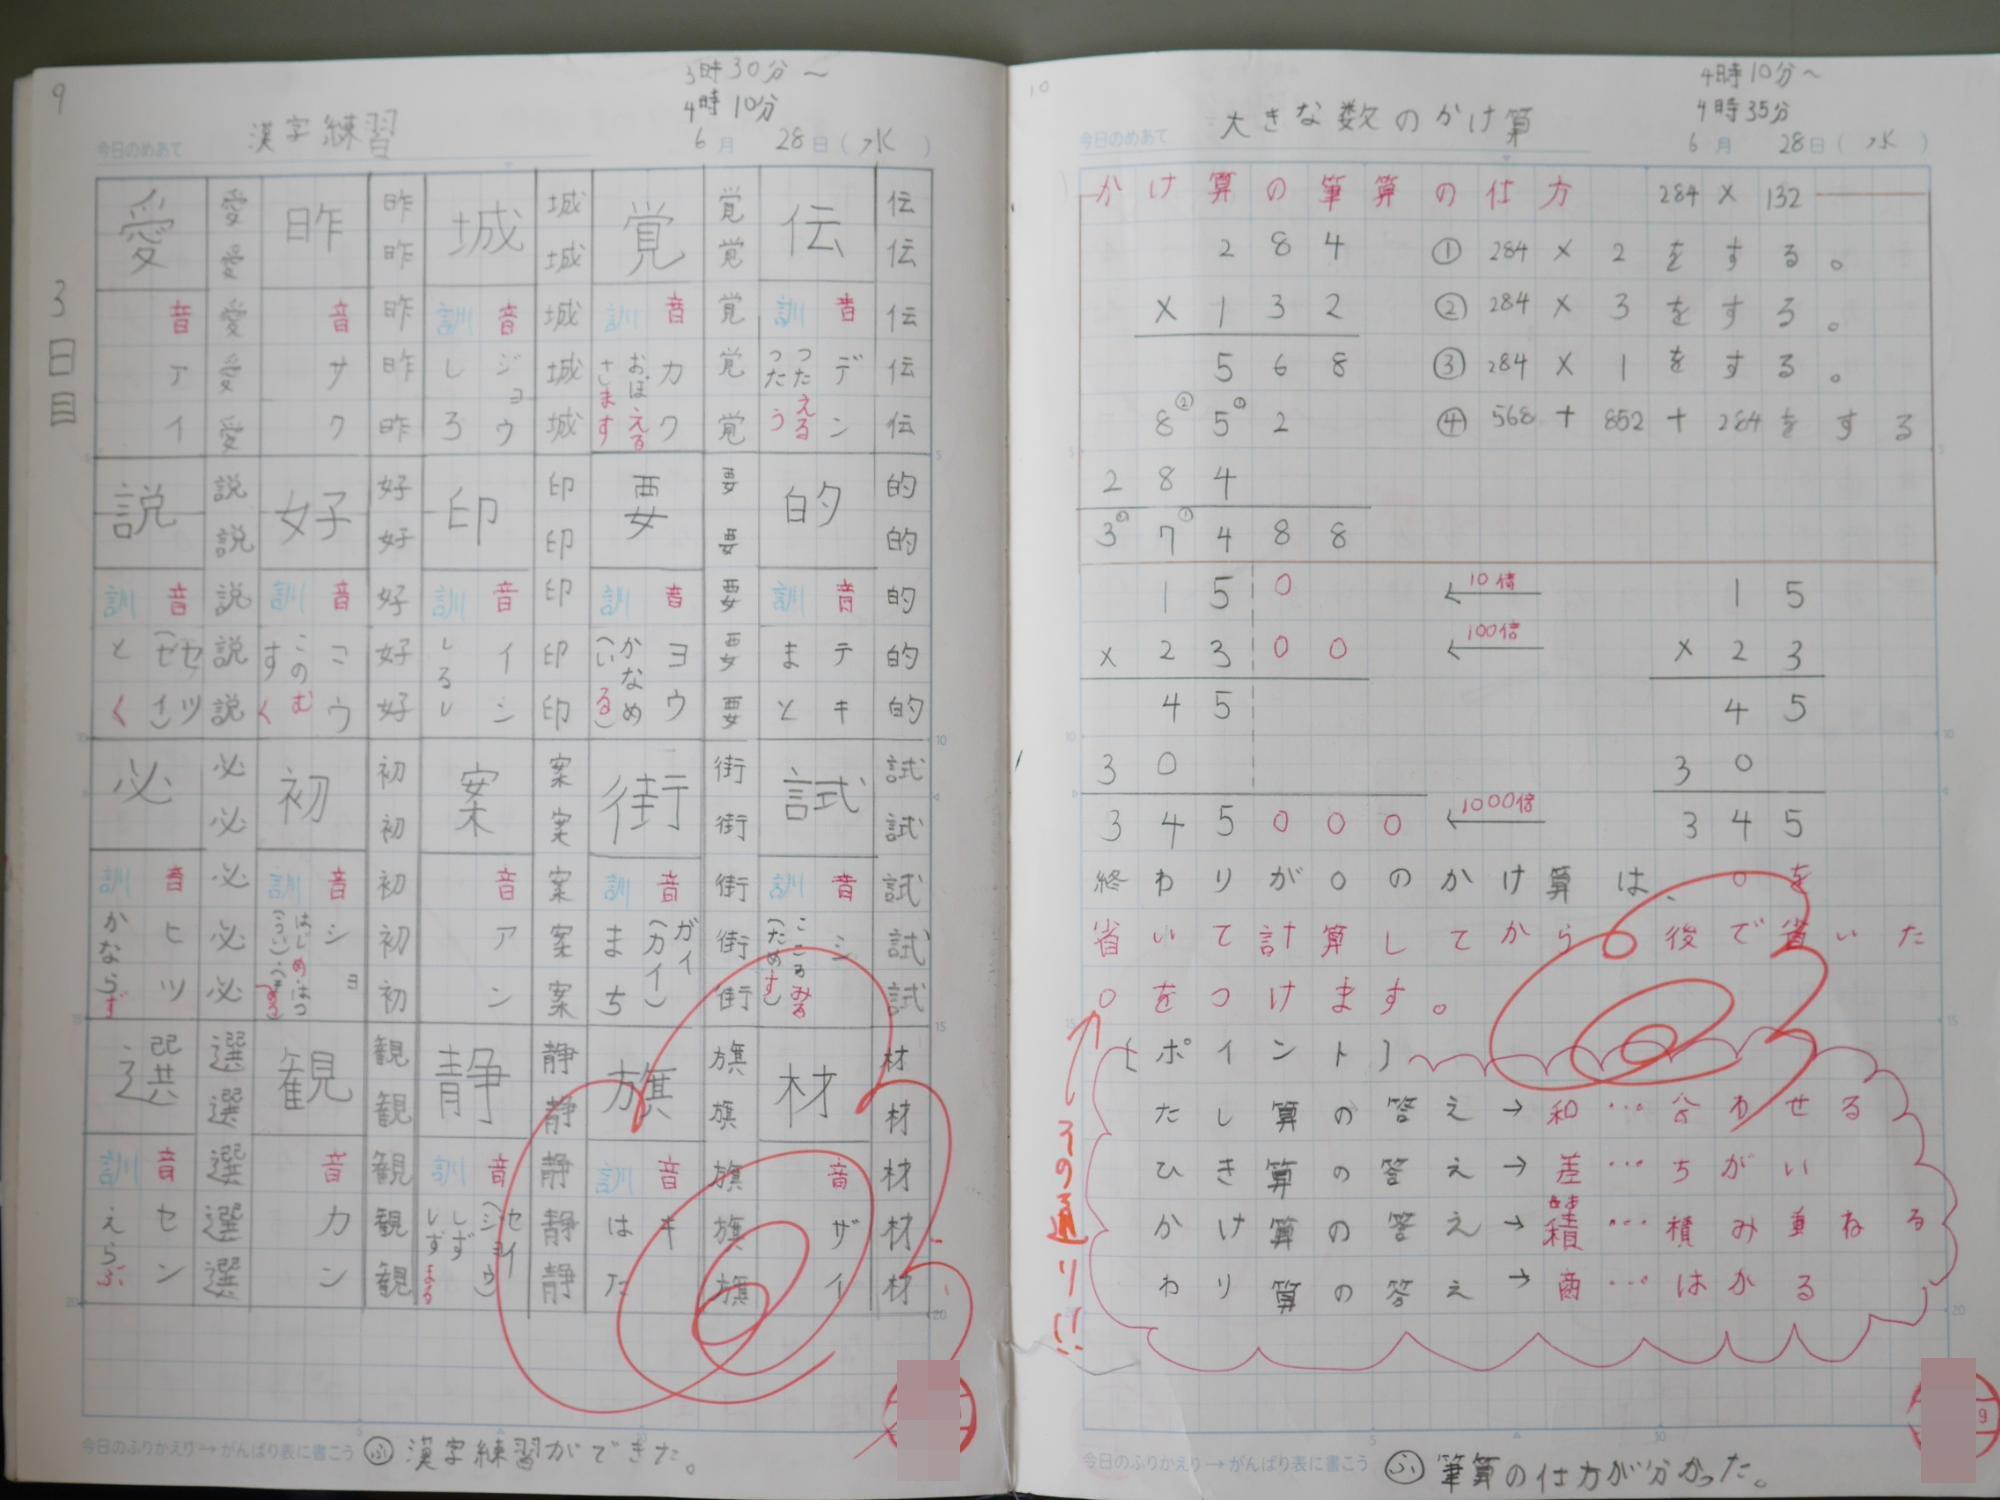 9
3時30分〜
4時10分
今日のめあて 漢字練習 6月28日(水)
3日目
伝 伝 伝 伝 伝
伝
音 デン
訓 つたえる つたう
覚 覚 覚 覚 覚
覚
音 カク
訓 おぼえる さます
城 城 城 城 城
城
音 ジョウ
訓 しろ
昨 昨 昨 昨 昨
昨
音 サク
愛 愛 愛 愛 愛
愛
音 アイ
的 的 的 的 的
的
音 テキ
訓 まと
要 要 要 要 要
要
音 ヨウ
訓 かなめ (いる)
印 印 印 印 印
印
音 イン
訓 しるし
好 好 好 好 好
好
音 コウ
訓 このむ すく
説 説 説 説 説
説
音 セツ (ゼイ)
訓 とく
試 試 試 試 試
試
音 シ
訓 こころみる (ためす)
街 街 街 街 街
街
音 ガイ (カイ)
訓 まち
案 案 案 案 案
案
音 アン
初 初 初 初 初
初
音 ショ
訓 はじめ・はつ
必 必 必 必 必
必
音 ヒツ
訓 かならず
材 材 材 材 材
材
音 ザイ
旗 旗 旗 旗 旗
旗
音 キ
訓 はた
静 静 静 静 静
静
音 セイ (ジョウ)
訓 しず しずまる
観 観 観 観 観
観
音 カン
選 選 選 選 選
選
音 セン
訓 えらぶ
今日のふりかえり→がんばり表に書こう ㋫漢字練習ができた。
10
4時10分〜
4時35分
今日のめあて 大きな数のかけ算 6月28日(水)
かけ算の筆算の仕方 284×132
284
×132
568
8②5①2
284
3⓪7①488
①284×2をする。
②284×3をする。
③284×1をする。
④568+852+284をする
150 ←10倍 15
×2300 ←100倍 ×23
45 45
30 30
345000 ←1000倍 345
終わりが0のかけ算は、0を
省いて計算してから、後で省いた
0をつけます。
その通り!!
[ポイント]
たし算の答え→和…合わせる
ひき算の答え→差…ちがい
かけ算の答え→積…積み重ねる
わり算の答え→商…はかる
今日のふりかえり→がんばり表に書こう ㋫筆算の仕方が分かった。